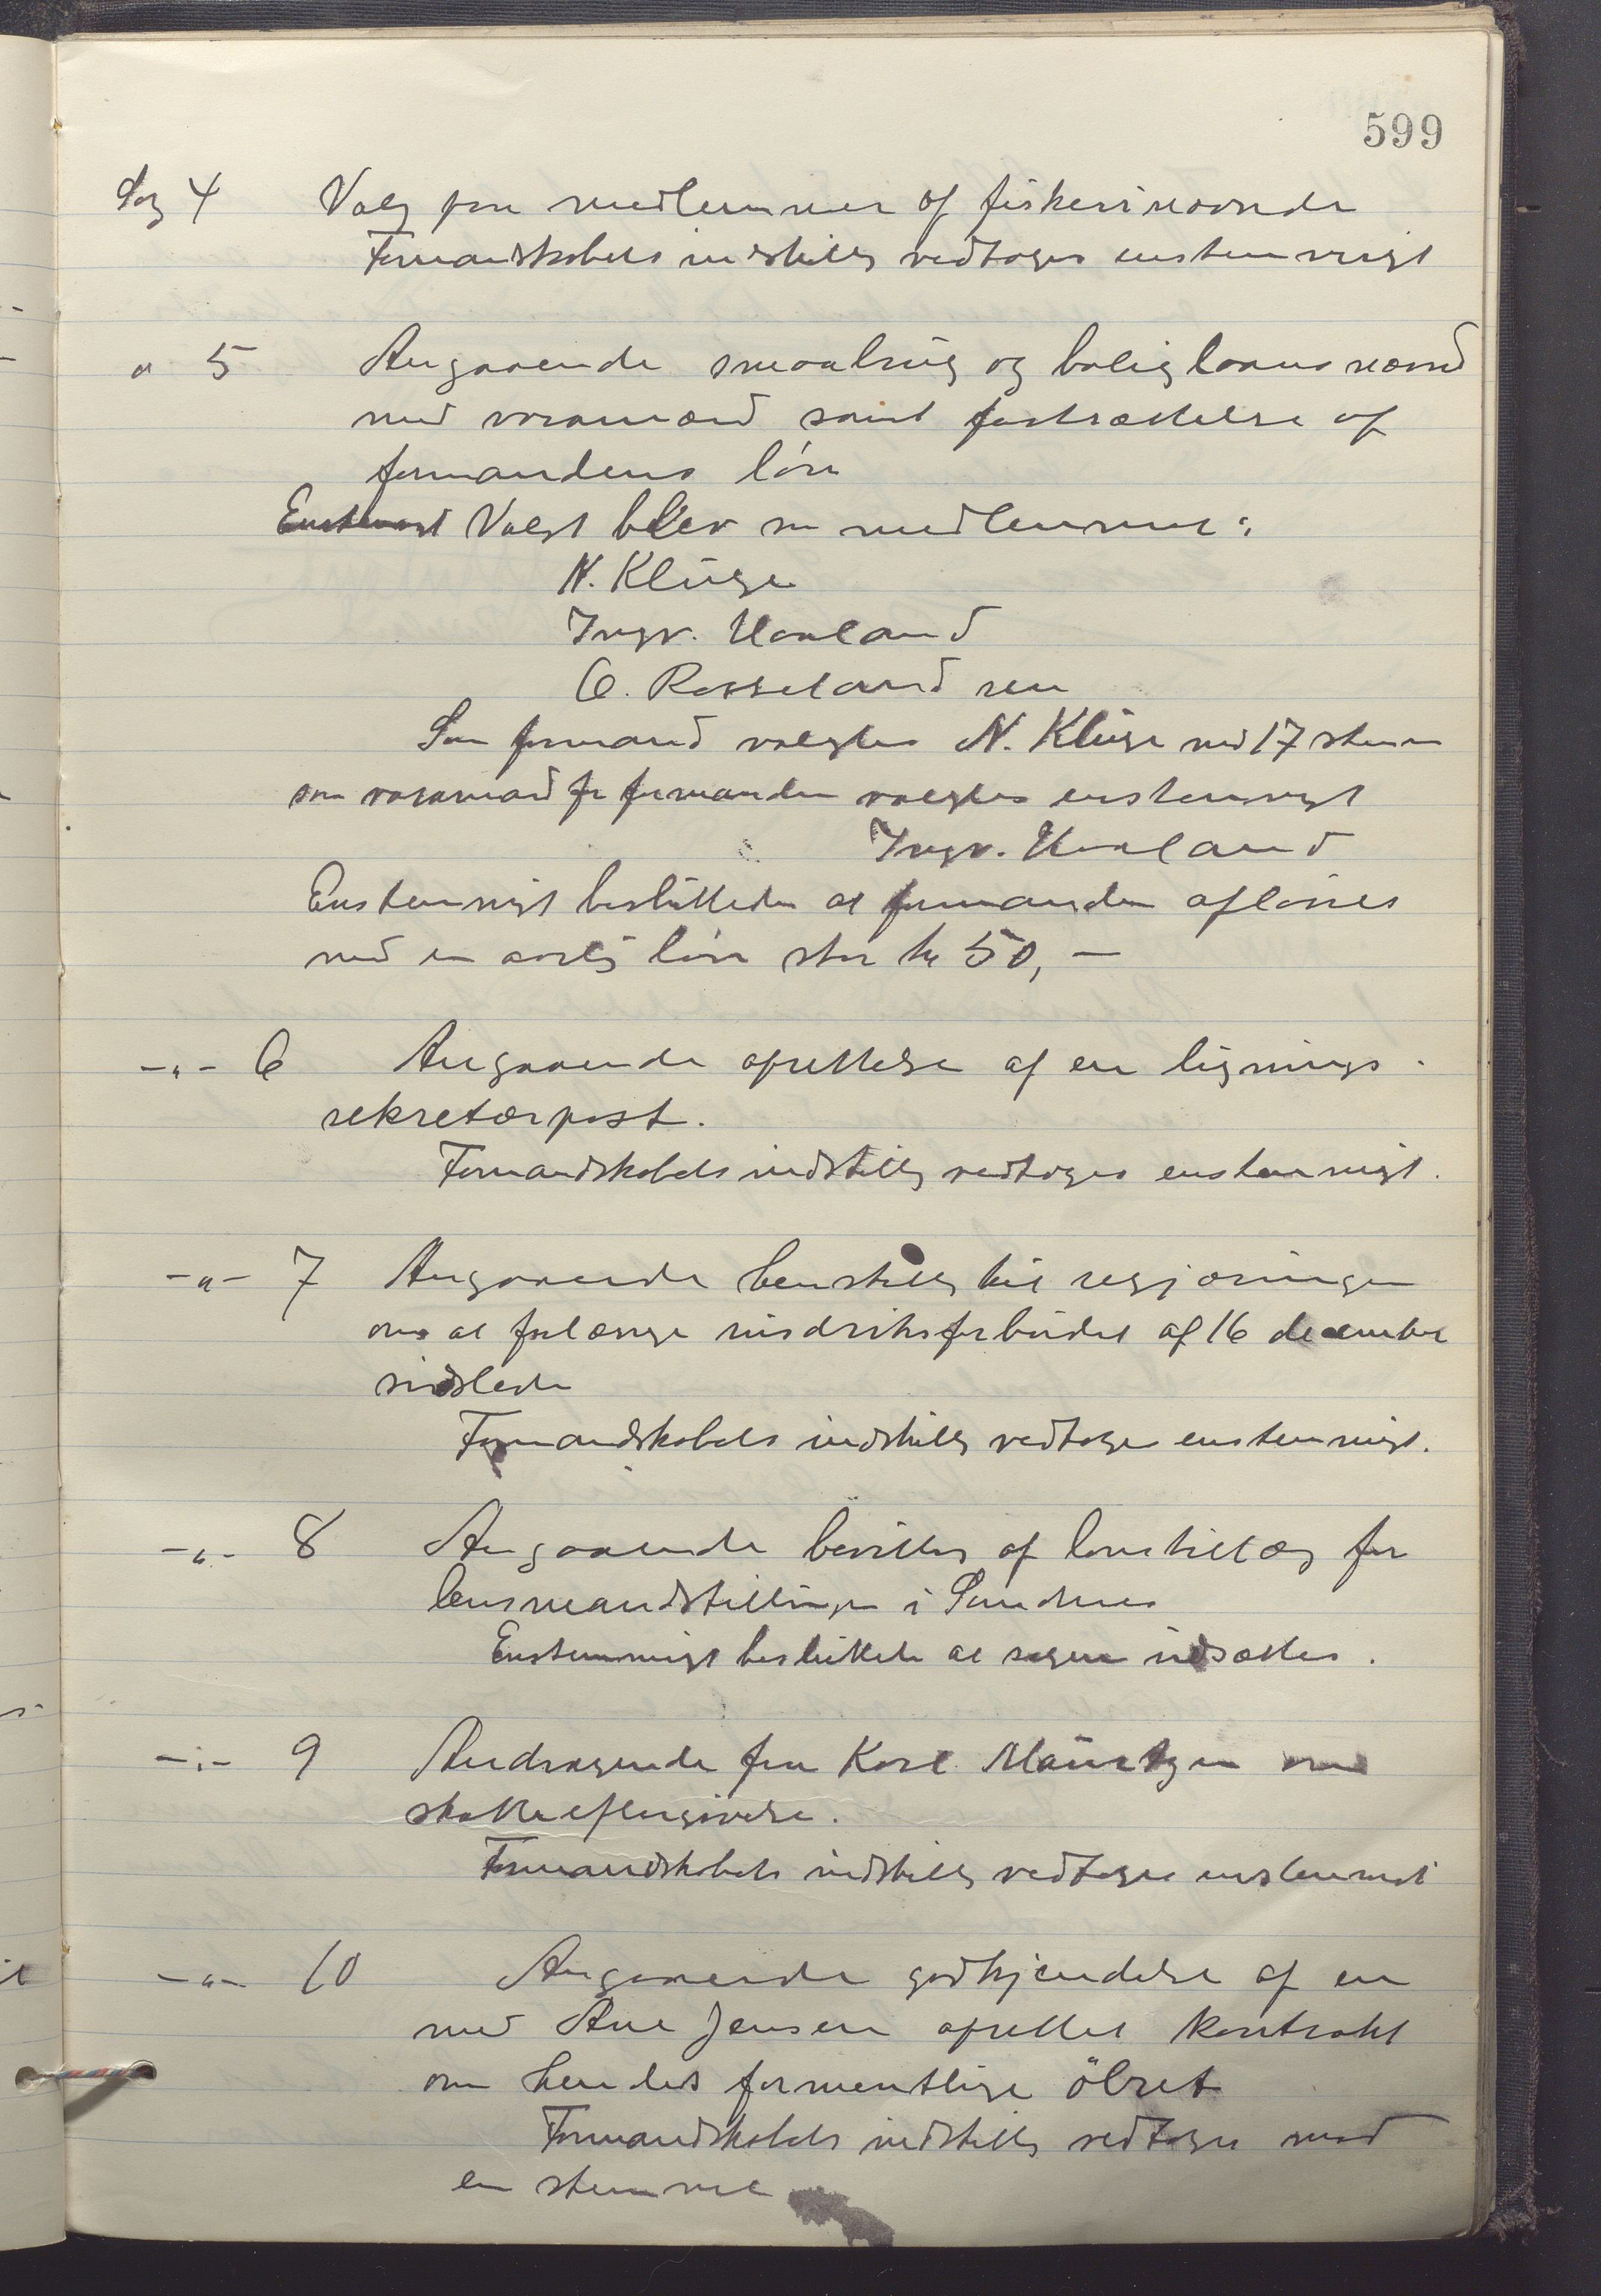 599
Sag 4 Valg paa medlemmer af fiskerinævnde
Formandskabets indstillg vedtoges enstemmigt
" 5 Angaaende smaabrug og boliglaans nævnd
med varamænd samt fastsættelse af
formandens løn
Enstemmigt Valgt blev som medlemmer:
N. Kluge
Ingv. Haaland
O. Rosseland sen
Som formand valgtes N. Kluge med 17 stemmer
som varamand for formanden valgtes enstemmigt
Ingv. Haaland
Enstemmigt besluttedes at formanden aflønnes
med en aarlig løn stor kr 50,-
-"- 6 Angaaende oprettelse af en lignings-
sekretærpost.
Formandskabets indstillg vedtoges enstemmigt.
-"- 7 Angaaende henstillg til regjeringen
om at forlænge rusdriksforbudet af 16 december
sidstleden
Formandskabets indstillg vedtoges enstemmigt.
-"- 8 Angaaende bevillg af lønstillæg for
lensmandstillingen i Sandnes
Enstemmigt besluttet at sagen udsættes.
-"- 9 Andragende fra Karl om
skatteeftergivelse.
Formandskabets indstillg vedtoges enstemmigt
-"- 10 Angaaende godkjendelse af en
med Ane Jensen oprettet kontrakt
om hendes formentlige ølret
Formandskabets indstillg vedtoges mod
en stemme